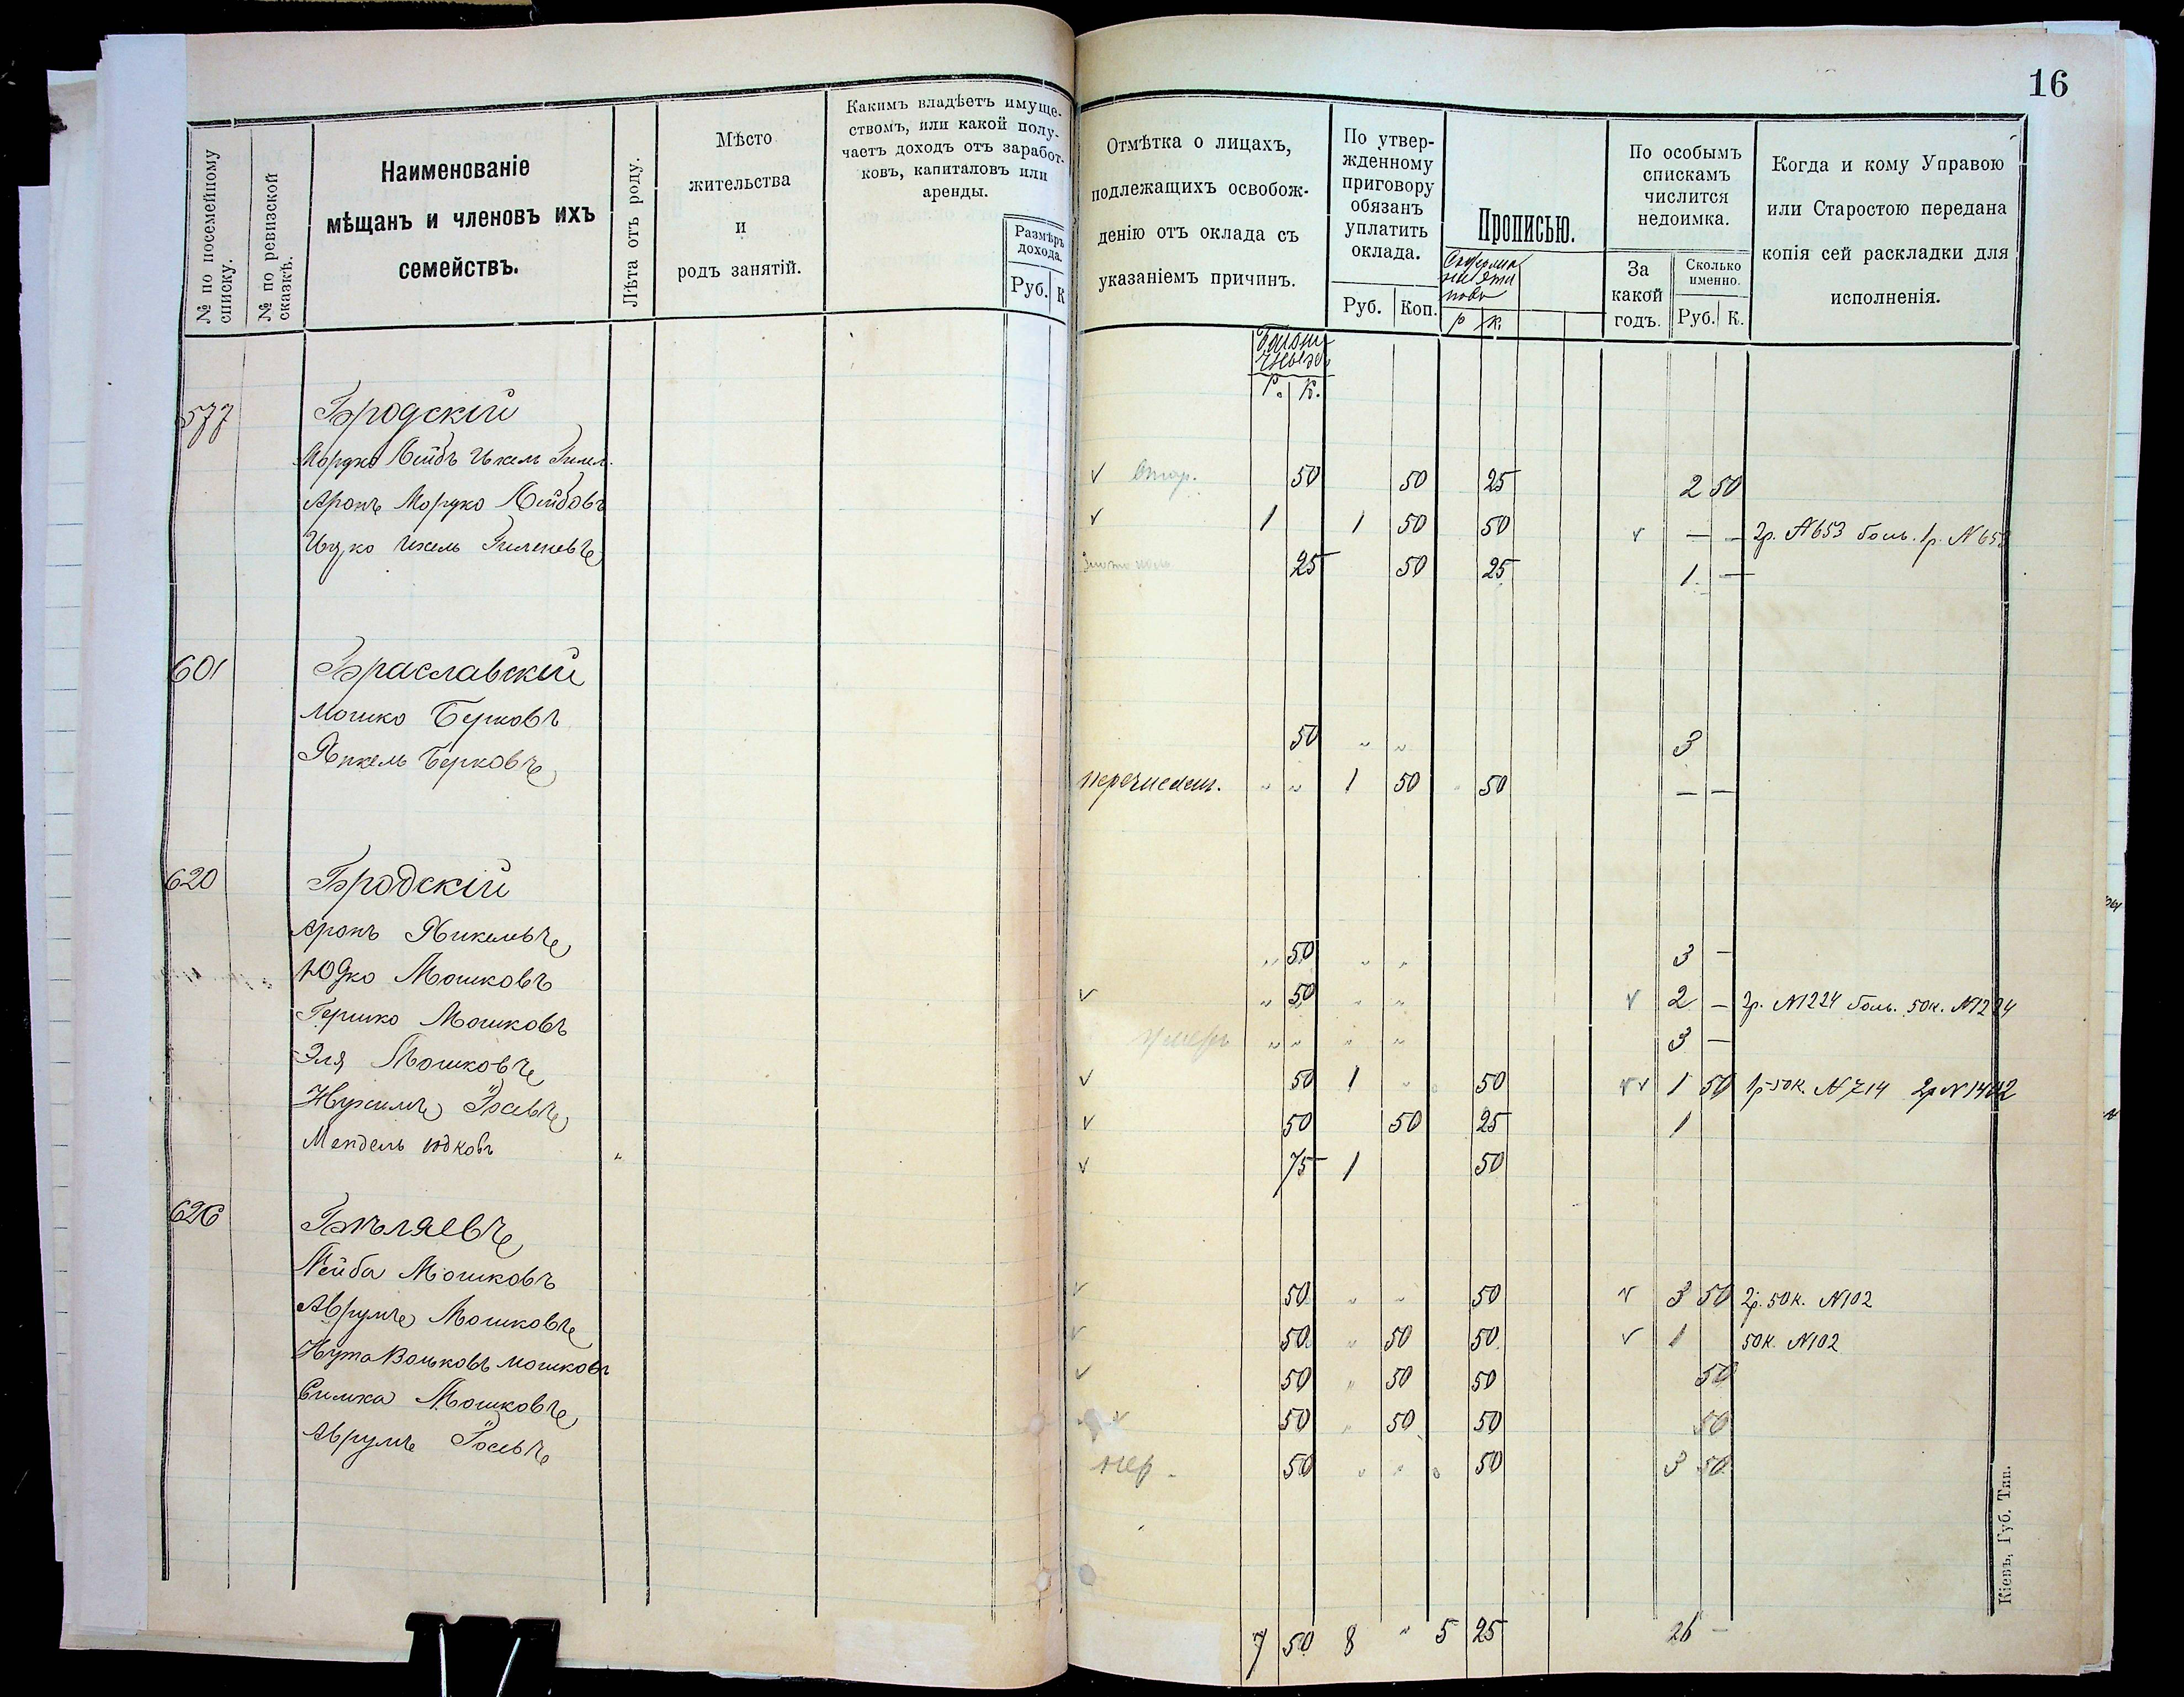 16
№ по посемейному списку.
№ по ревизской сказкѣ.
Наименованіе
мѣщанъ и членовъ ихъ
семействъ.
Лѣта отъ роду.
Мѣсто
жительства
и
родъ занятій.
Какимъ владѣетъ имуще-
ствомъ, или какой полу-
чаетъ доходъ отъ заработ-
ковъ, капиталовъ или
аренды.
Размѣръ
дохода.
Руб. К
Отмѣтка о лицахъ,
подлежащихъ освобож-
денію отъ оклада съ
указаніемъ причинъ.
По утвер-
жденному
приговору
обязанъ
уплатить
оклада.
Руб. Коп.
Прописью.
р к.
По особымъ
спискамъ
числится
недоимка.
За
какой
годъ.
Сколько
именно.
Руб. К.
Когда и кому Управою
или Старостою передана
копія сей раскладки для
исполненія.
Р. К.
577 Бродскій
Мордко Лейбъ Ицкель 50 50 25 2 50
Аронъ Мордко Лейбовъ 1 1 50 50 — — 2р. N653 боль. 1р. N653
Ицко Ихель 25 50 25 1 —
601 Браславскій
Мошко Берковъ 50 „ „ 3
Янкель Берковъ перечислен. „ „ 1 50 „ 50 — —
620 Бродскій
Аронъ Янкелевъ „ 50 „ „ 3 —
Юдко Мошковъ „ 50 „ „ 2 — 2р. N1224 боль. 50к. N1224
Гершко Мошковъ умеръ „ „ „ „ 3 —
Эля Мошковъ 50 1 „ 50 1 50 1р 50к. N714 2р N1442
Нухимъ Іосевъ 50 50 25 1
Мендель Юдковъ „ 75 1 50
626 Бѣляевъ
Лейба Мошковъ 50 „ „ 50 3 50 2р. 50к. N102
Аврумъ Мошковъ 50 „ 50 50 1 50к. N102
Нута Вольковъ Мошковъ 50 „ 50 50 50
Симха Мошковъ 50 „ 50 50 50
Аврумъ Іосевъ пер. 50 „ „ 50 3 50
7 50 8 „ 5 25 26 —
Кіевъ, Губ. Тип.